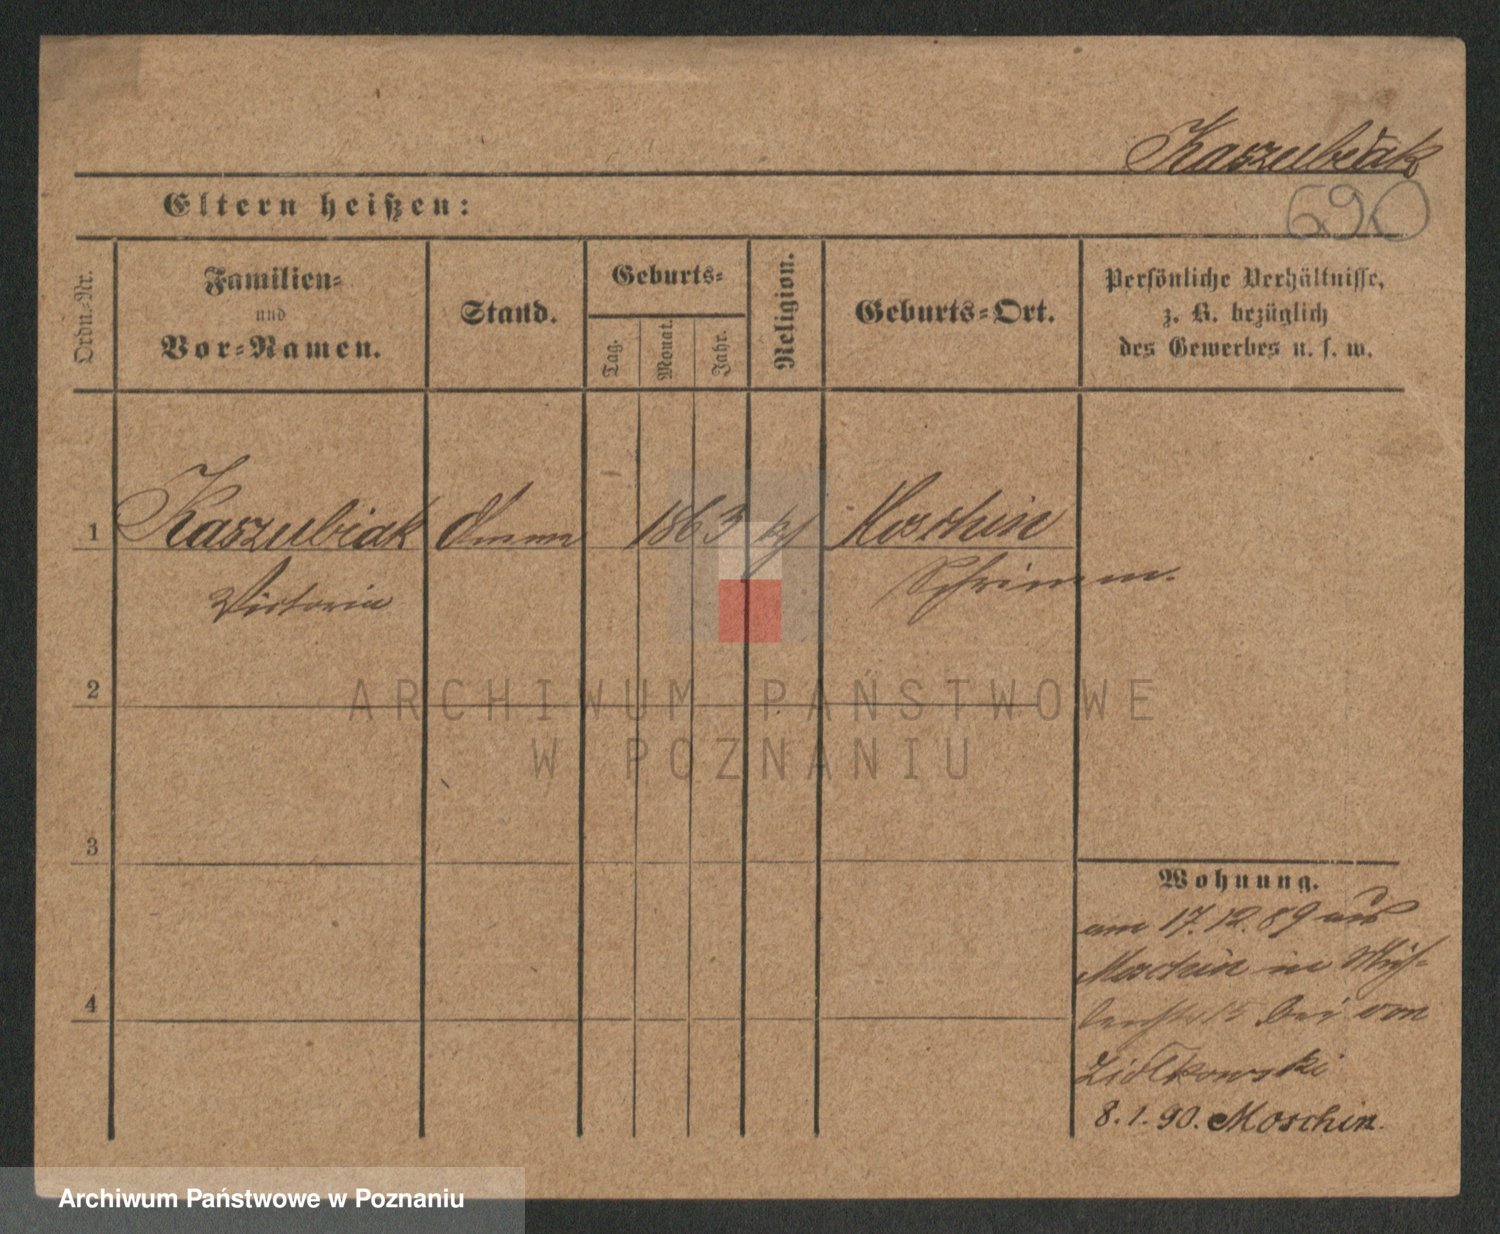 Kaszubiak
690
Eltern heißen:
Ordn.-Nr.
Familien-
und
Vor-Namen.
Stand.
Geburts-
Tag.
Monat.
Jahr.
Religion.
Geburts-Ort.
Persönliche Verhältnisse,
z. B. bezüglich
des Gewerbes u. s. w.
1 Kaszubiak 1863 Moschin
Victoria Schrimm.
2
ARCHIWUM PAŃSTWOWE
W POZNANIU
3
4
Wohnung.
am 17.12.89 aus
Moschin in Müh-
lenstr 15 bei von
Ziolkowski
8.1.90. Moschin.
Archiwum Państwowe w Poznaniu